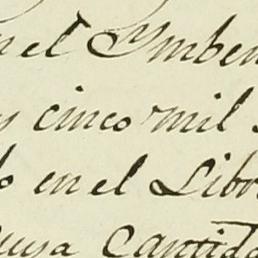 en el Ymben
cinco mil
do en el Libr
cuya Cantida